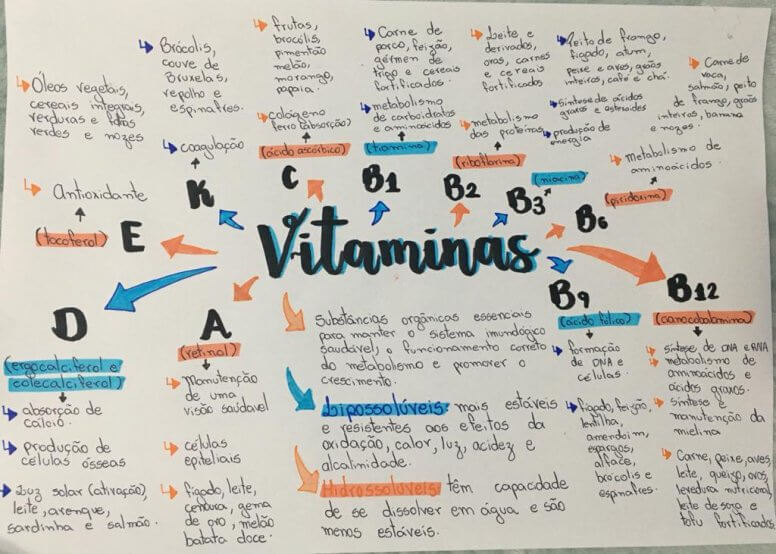 Vitaminas
Óleos vegetais,
cereais integrais,
verduras e
verdes e nozes
Antioxidante
(tocoferol)
E
Brócolis,
couve de
Bruxelas,
repolho e
espinafres.
coagulação
K
frutas,
brocólis,
pimentão
melão,
morango,
papaia.
colágeno
ferro (absorção)
(ácido ascórbico)
C
Carne de
porco, feijão,
gérmen de
trigo e cereais
fortificados.
metabolismo
de carboidratos
e aminoácidos
(tiamina)
B1
Leite e
derivados,
ovos, carnes
e cereais
fortificados
metabolismo
das proteínas
(riboflavina)
B2
Peito de frango,
fígado, atum,
peixe e aves, grãos
inteiros, café e chá.
síntese de ácidos
graxos e esteroides
produção de
energia
(niacina)
B3
Carne de
vaca,
salmão, peito
de frango, grãos
inteiros, banana
e nozes.
metabolismo de
aminoácidos.
(piridoxina)
B6
D
(ergocalciferol e
colecalciferol)
absorção de
cálcio.
produção de
células ósseas
Luz solar (ativação),
leite, arenque,
sardinha e salmão.
A
(retinal)
Manutenção
de uma
visão saudável
células
epiteliais
fígado, leite,
cenoura, gema
de ovo, melão
batata doce.
Substâncias orgânicas essenciais
para manter o sistema imunológico
saudável, o funcionamento correto
do metabolismo e promover o
crescimento.
Lipossolúveis: mais estáveis
e resistentes aos efeitos da
oxidação, calor, luz, acidez e
alcalinidade.
Hidrossolúveis: têm capacidade
de se dissolver em água e são
menos estáveis.
B9
(ácido fólico)
formação
de DNA e
células.
fígado, feijão,
lentilha,
amendoim,
espargos,
alface,
brócolis e
espinafres.
B12
(cianocobalamina)
síntese de DNA e RNA
metabolismo de
aminoácidos e
ácidos graxos.
síntese e
manutenção da
mielina
Carne, peixe, aves,
leite, queijo, ovos,
levedura nutricional,
leite de soja e
tofu fortificados.